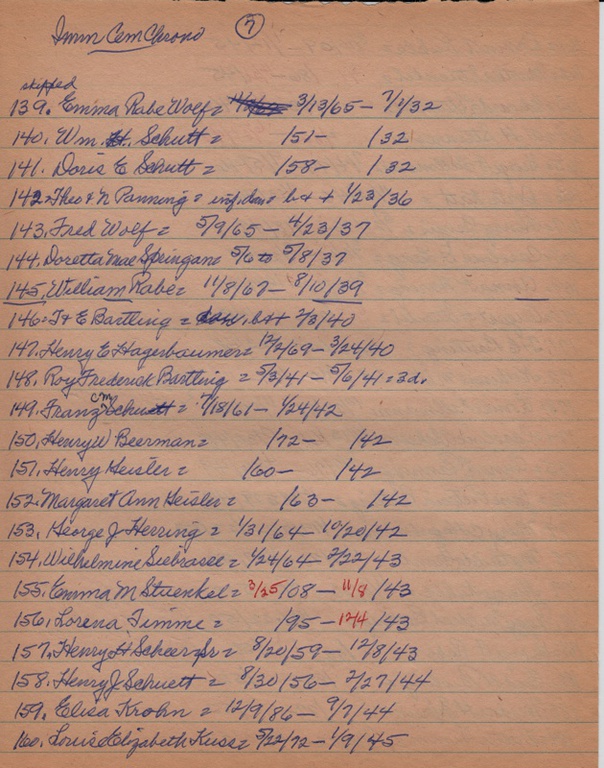 Imm Cem Chrono (7)
skipped
139. Emma Rabe Wolf = 3/13/65 – 7/1/32
140. Wm H. Schutt = /51 – /32
141. Doris E Schutt = /58 – /32
142. Theo & N Panning = inf dau = b & + 1/23/36
143. Fred Wolf = 5/9/65 – 4/23/37
144. Doretta Mae Springan = 5/6 to 5/8/37
145. William Rabe = 11/8/67 – 8/10/39
146 = T & E Bartling = b & + 2/3/40
147. Henry E Hagerbaumer = 12/2/69 – 3/24/40
148. Roy Frederick Bartling = 5/3/41 – 5/6/41 = 3d.
149. Franz = 7/18/61 – 1/24/42
150. Henry W Beerman = /72 – /42
151. Henry Heisler = /60 – /42
152. Margaret Ann Heisler = /63 – /42
153. George J Herring = 1/31/64 – 10/20/42
154. Wilhelmine Siebrasse = 1/24/64 – 2/22/43
155. Emma M Stuenkel = 3/25/08 – 11/8/43
156. Lorena Timme = /95 – 12/4/43
157. Henry H Scheer Sr = 8/20/59 – 12/8/43
158. Henry J Schuett = 8/30/56 – 2/27/44
159. Elisa Krohn = 12/9/86 – 9/7/44
160. Louise Elizabeth Kuss = 5/22/72 – 1/9/45